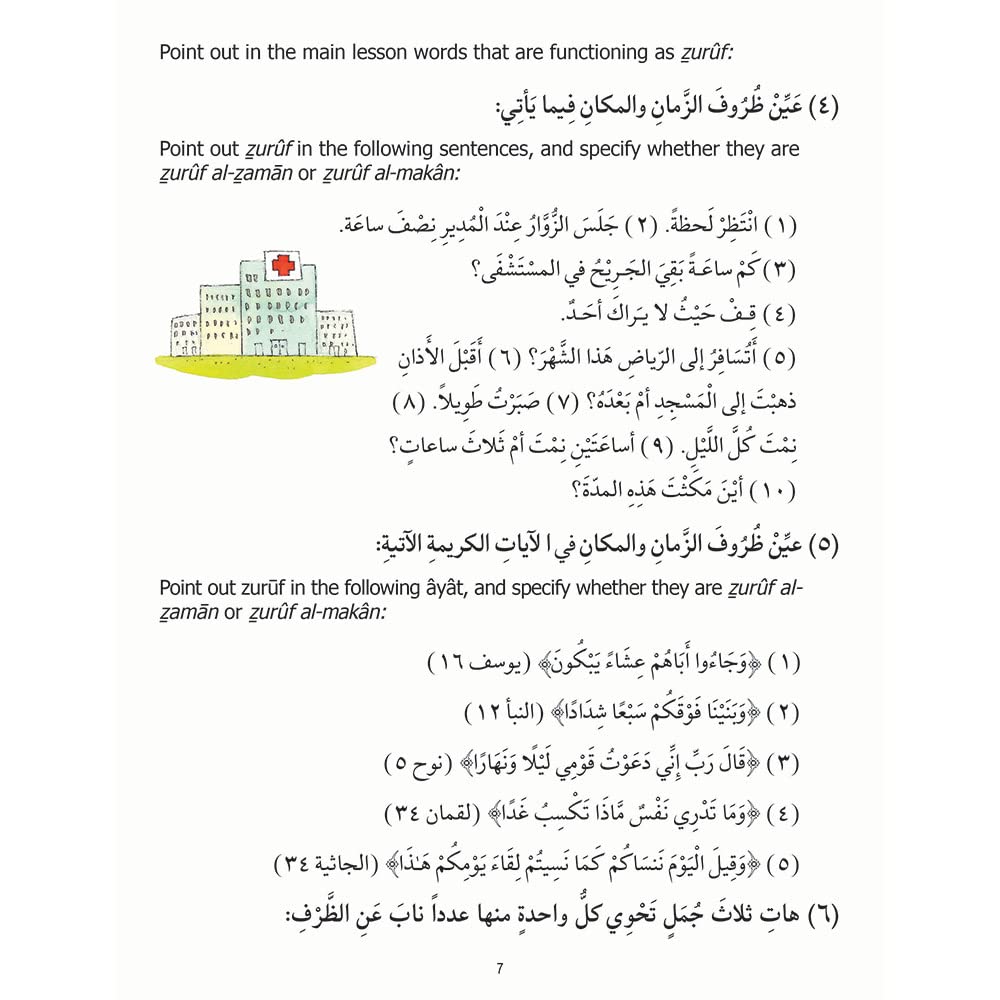 Point out in the main lesson words that are functioning as zurûf:
(٤) عَيِّنْ ظُرُوفَ الزَّمانِ والمكانِ فِيما يَأتِي:
Point out zurûf in the following sentences, and specify whether they are
zurûf al-zamān or zurûf al-makân:
(١) انْتَظِرْ لَحظةً. (٢) جَلَسَ الزُّوَّارُ عِنْدَ الْمُدِيرِ نِصْفَ ساعَة.
(٣) كَمْ ساعَـةً بَقِيَ الجَـرِيْحُ في المسْتَشْفَى؟
(٤) قِـفْ حَيْثُ لا يَـراكَ أحَـدٌ.
(٥) أَتُسَافِرُ إلى الرّياضِ هَذا الشَّهْرَ؟ (٦) أَقَبْلَ الأَذانِ
ذهبْتَ إلى الْمَسْجِدِ أمْ بَعْدَهُ؟ (٧) صَبَرْتُ طَوِيلاً. (٨)
نِمْتَ كُلَّ اللَّيْلِ. (٩) أساعَتَيْنِ نِمْتَ أمْ ثَلاثَ ساعاتٍ؟
(١٠) أيْنَ مَكَثْتَ هَذِهِ المدّةَ؟
(٥) عيِّنْ ظُرُوفَ الزَّمانِ والمكانِ في الآياتِ الكريمةِ الآتيةِ:
Point out zurūf in the following âyât, and specify whether they are zurûf al-
zamān or zurûf al-makân:
(١) ﴿وَجَاءُوا أَبَاهُمْ عِشَاءً يَبْكُونَ﴾ (يوسف ١٦)
(٢) ﴿وَبَنَيْنَا فَوْقَكُمْ سَبْعًا شِدَادًا﴾ (النبأ ١٢)
(٣) ﴿قَالَ رَبِّ إِنِّي دَعَوْتُ قَوْمِي لَيْلًا وَنَهَارًا﴾ (نوح ٥)
(٤) ﴿وَمَا تَدْرِي نَفْسٌ مَّاذَا تَكْسِبُ غَدًا﴾ (لقمان ٣٤)
(٥) ﴿وَقِيلَ الْيَوْمَ نَنسَاكُمْ كَمَا نَسِيتُمْ لِقَاءَ يَوْمِكُمْ هَـٰذَا﴾ (الجاثية ٣٤)
(٦) هاتِ ثلاثَ جُمَلٍ تَحْوِي كلُّ واحدةٍ منها عدداً نابَ عَنِ الظَّرْفِ:
7